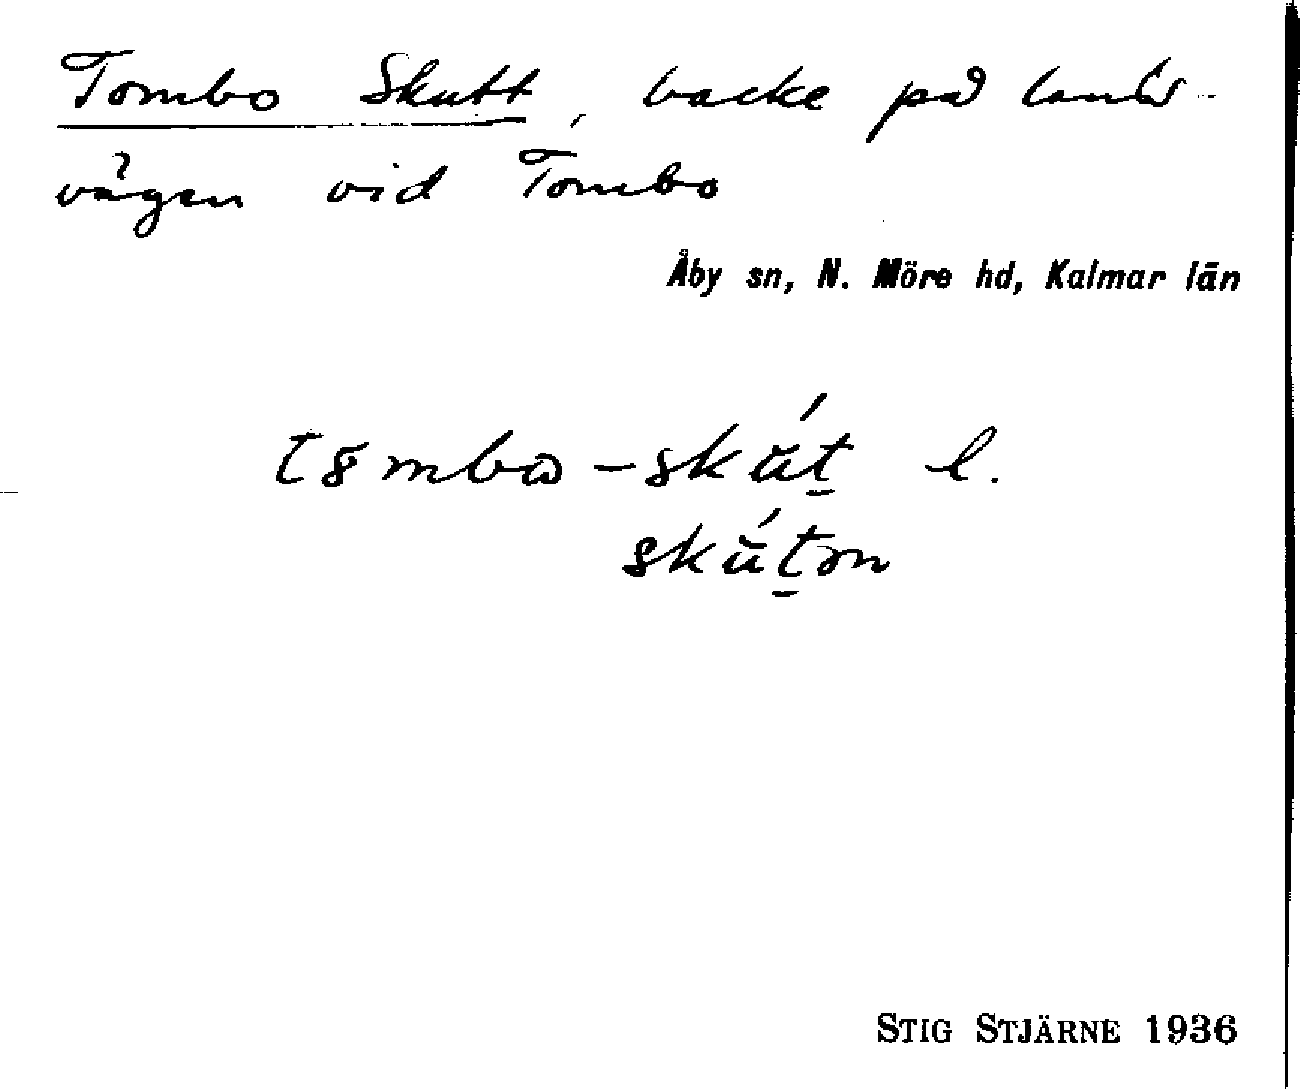 Tombo Skutt, backe på lands-
vägen vid Tombo
Åby sn, N. Möre hd, Kalmar län
l.
STIG STJÄRNE 1936